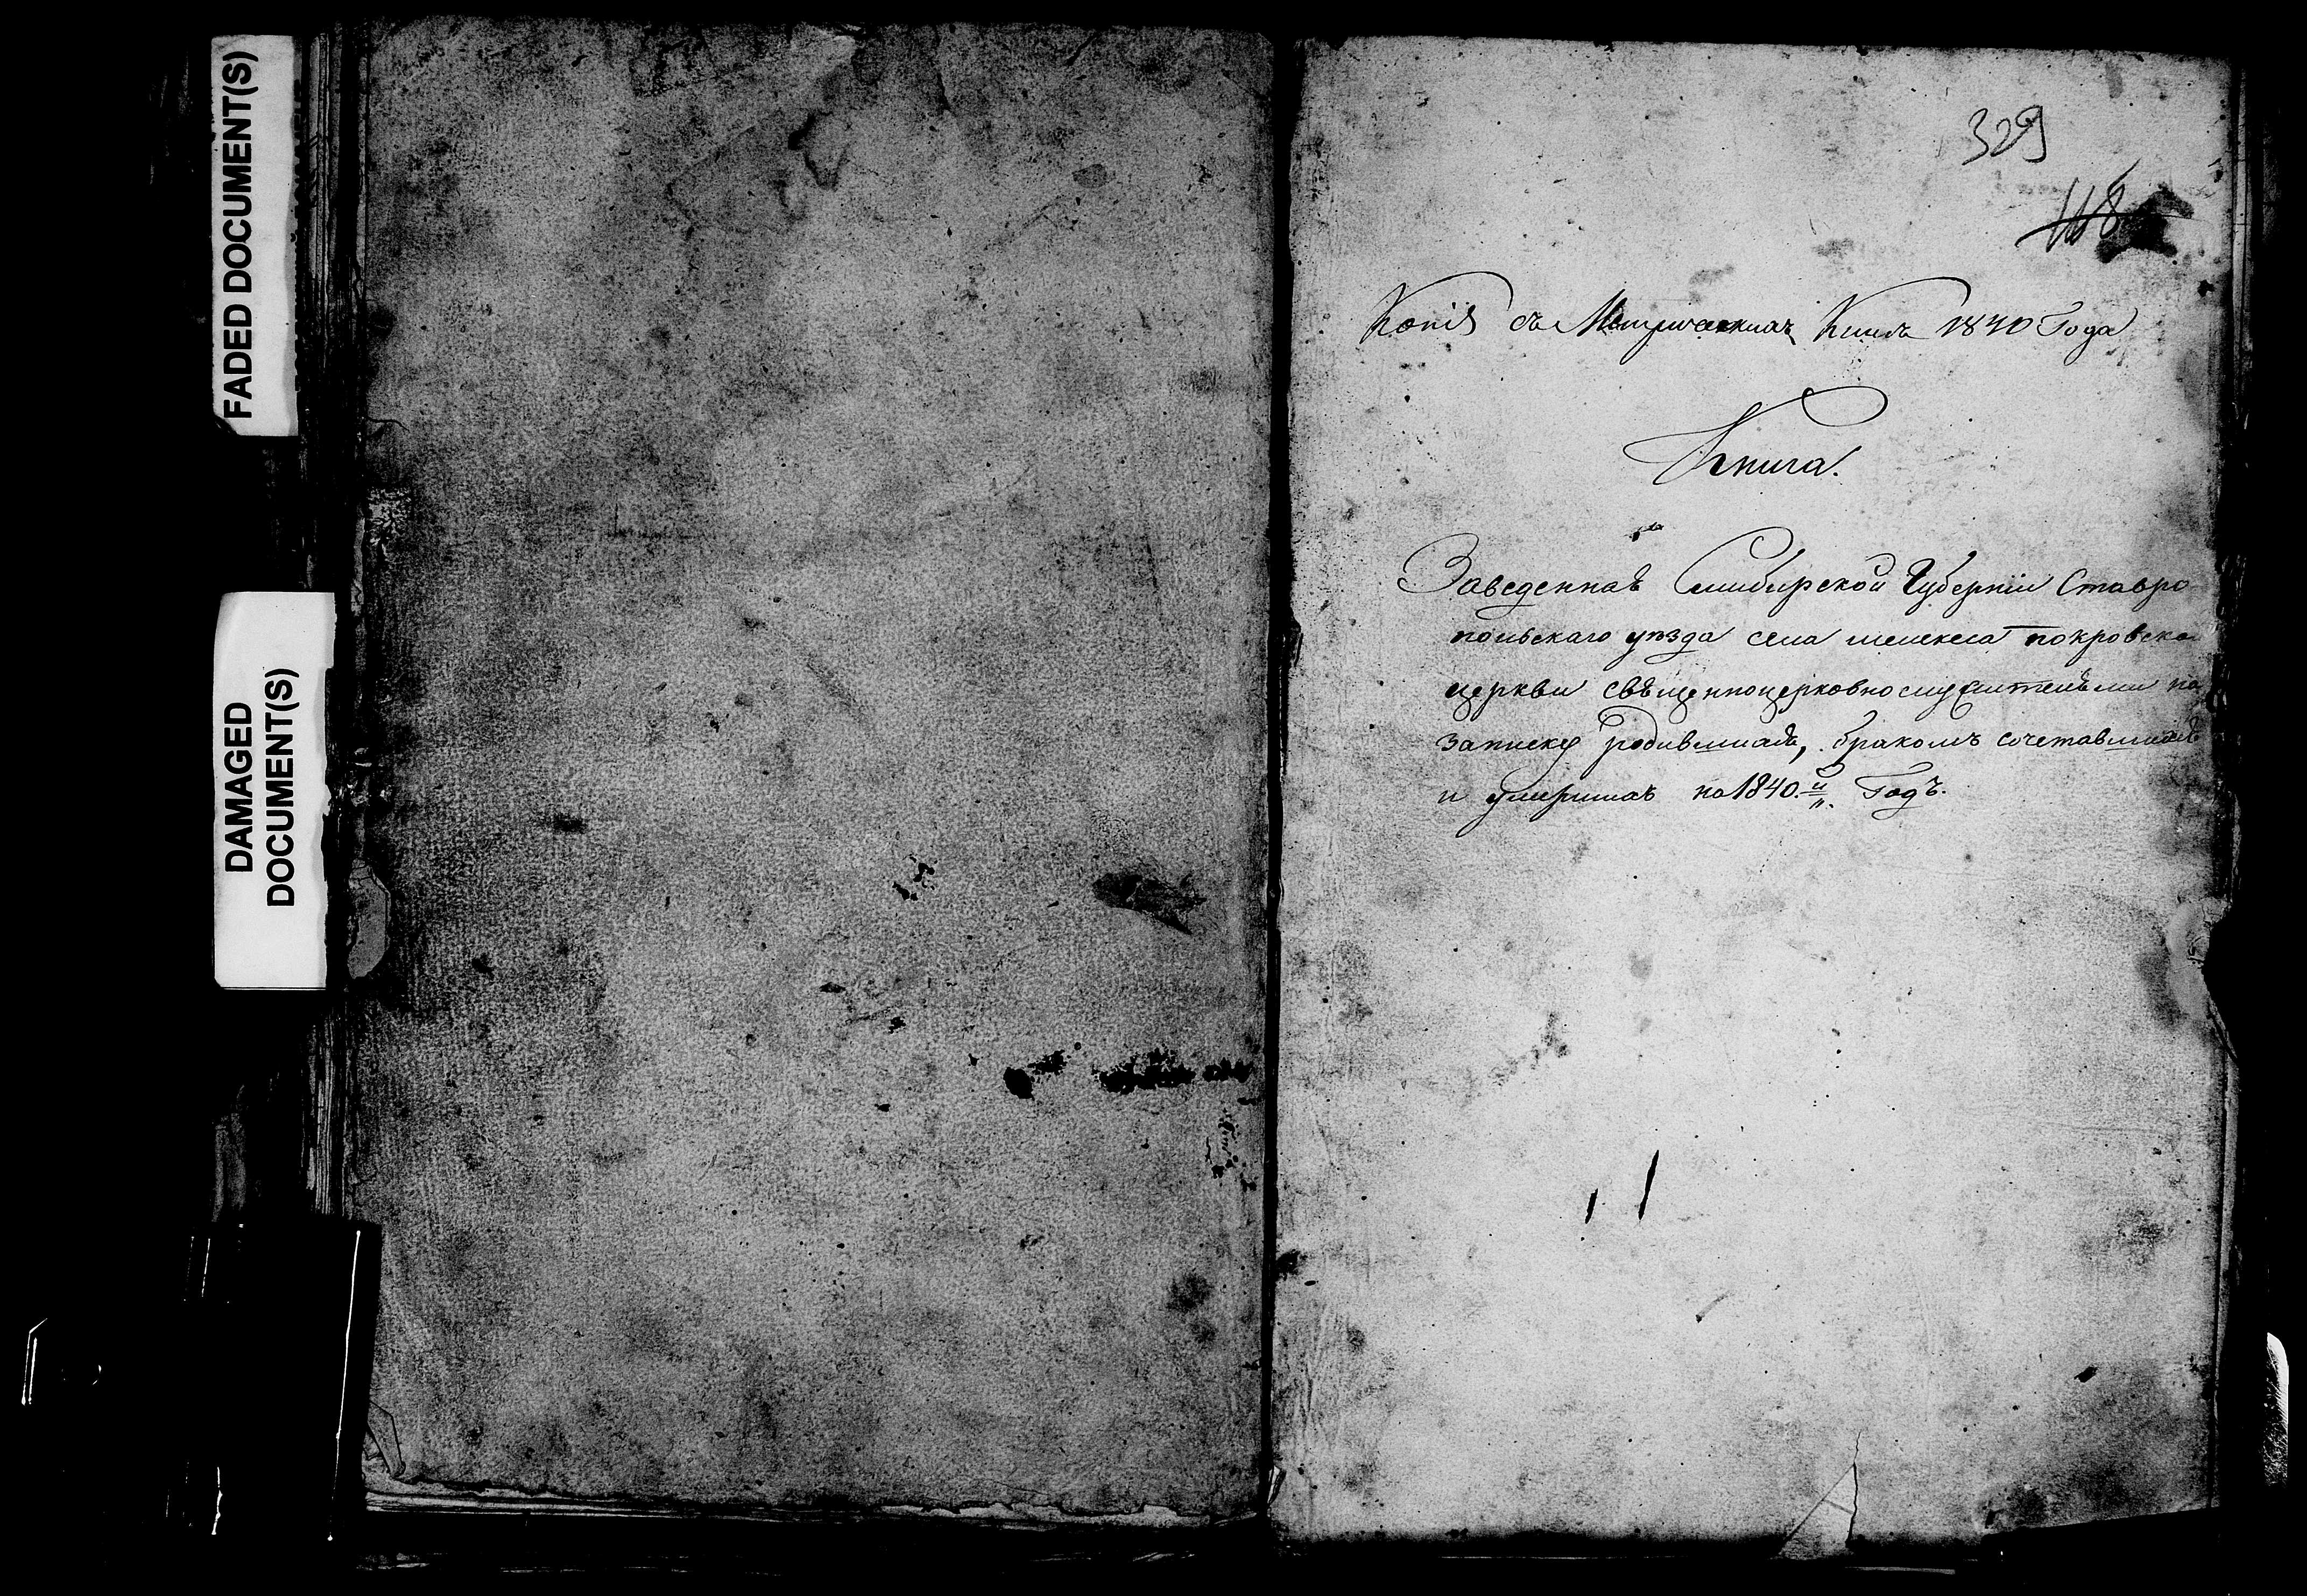 FADED DOCUMENT(S)
DAMAGED
DOCUMENT(S)
329
118
Копія съ Метрическихъ Книгъ 1840 Года
Книга.
Заведенная Симбирской Губерніи Ставро
польскаго уѣзда села мелекеса покровской
церкви священноцерковнослужителями на
записку родившихся, бракомъ сочетавшихся
и умершихъ на 1840.й Годъ.